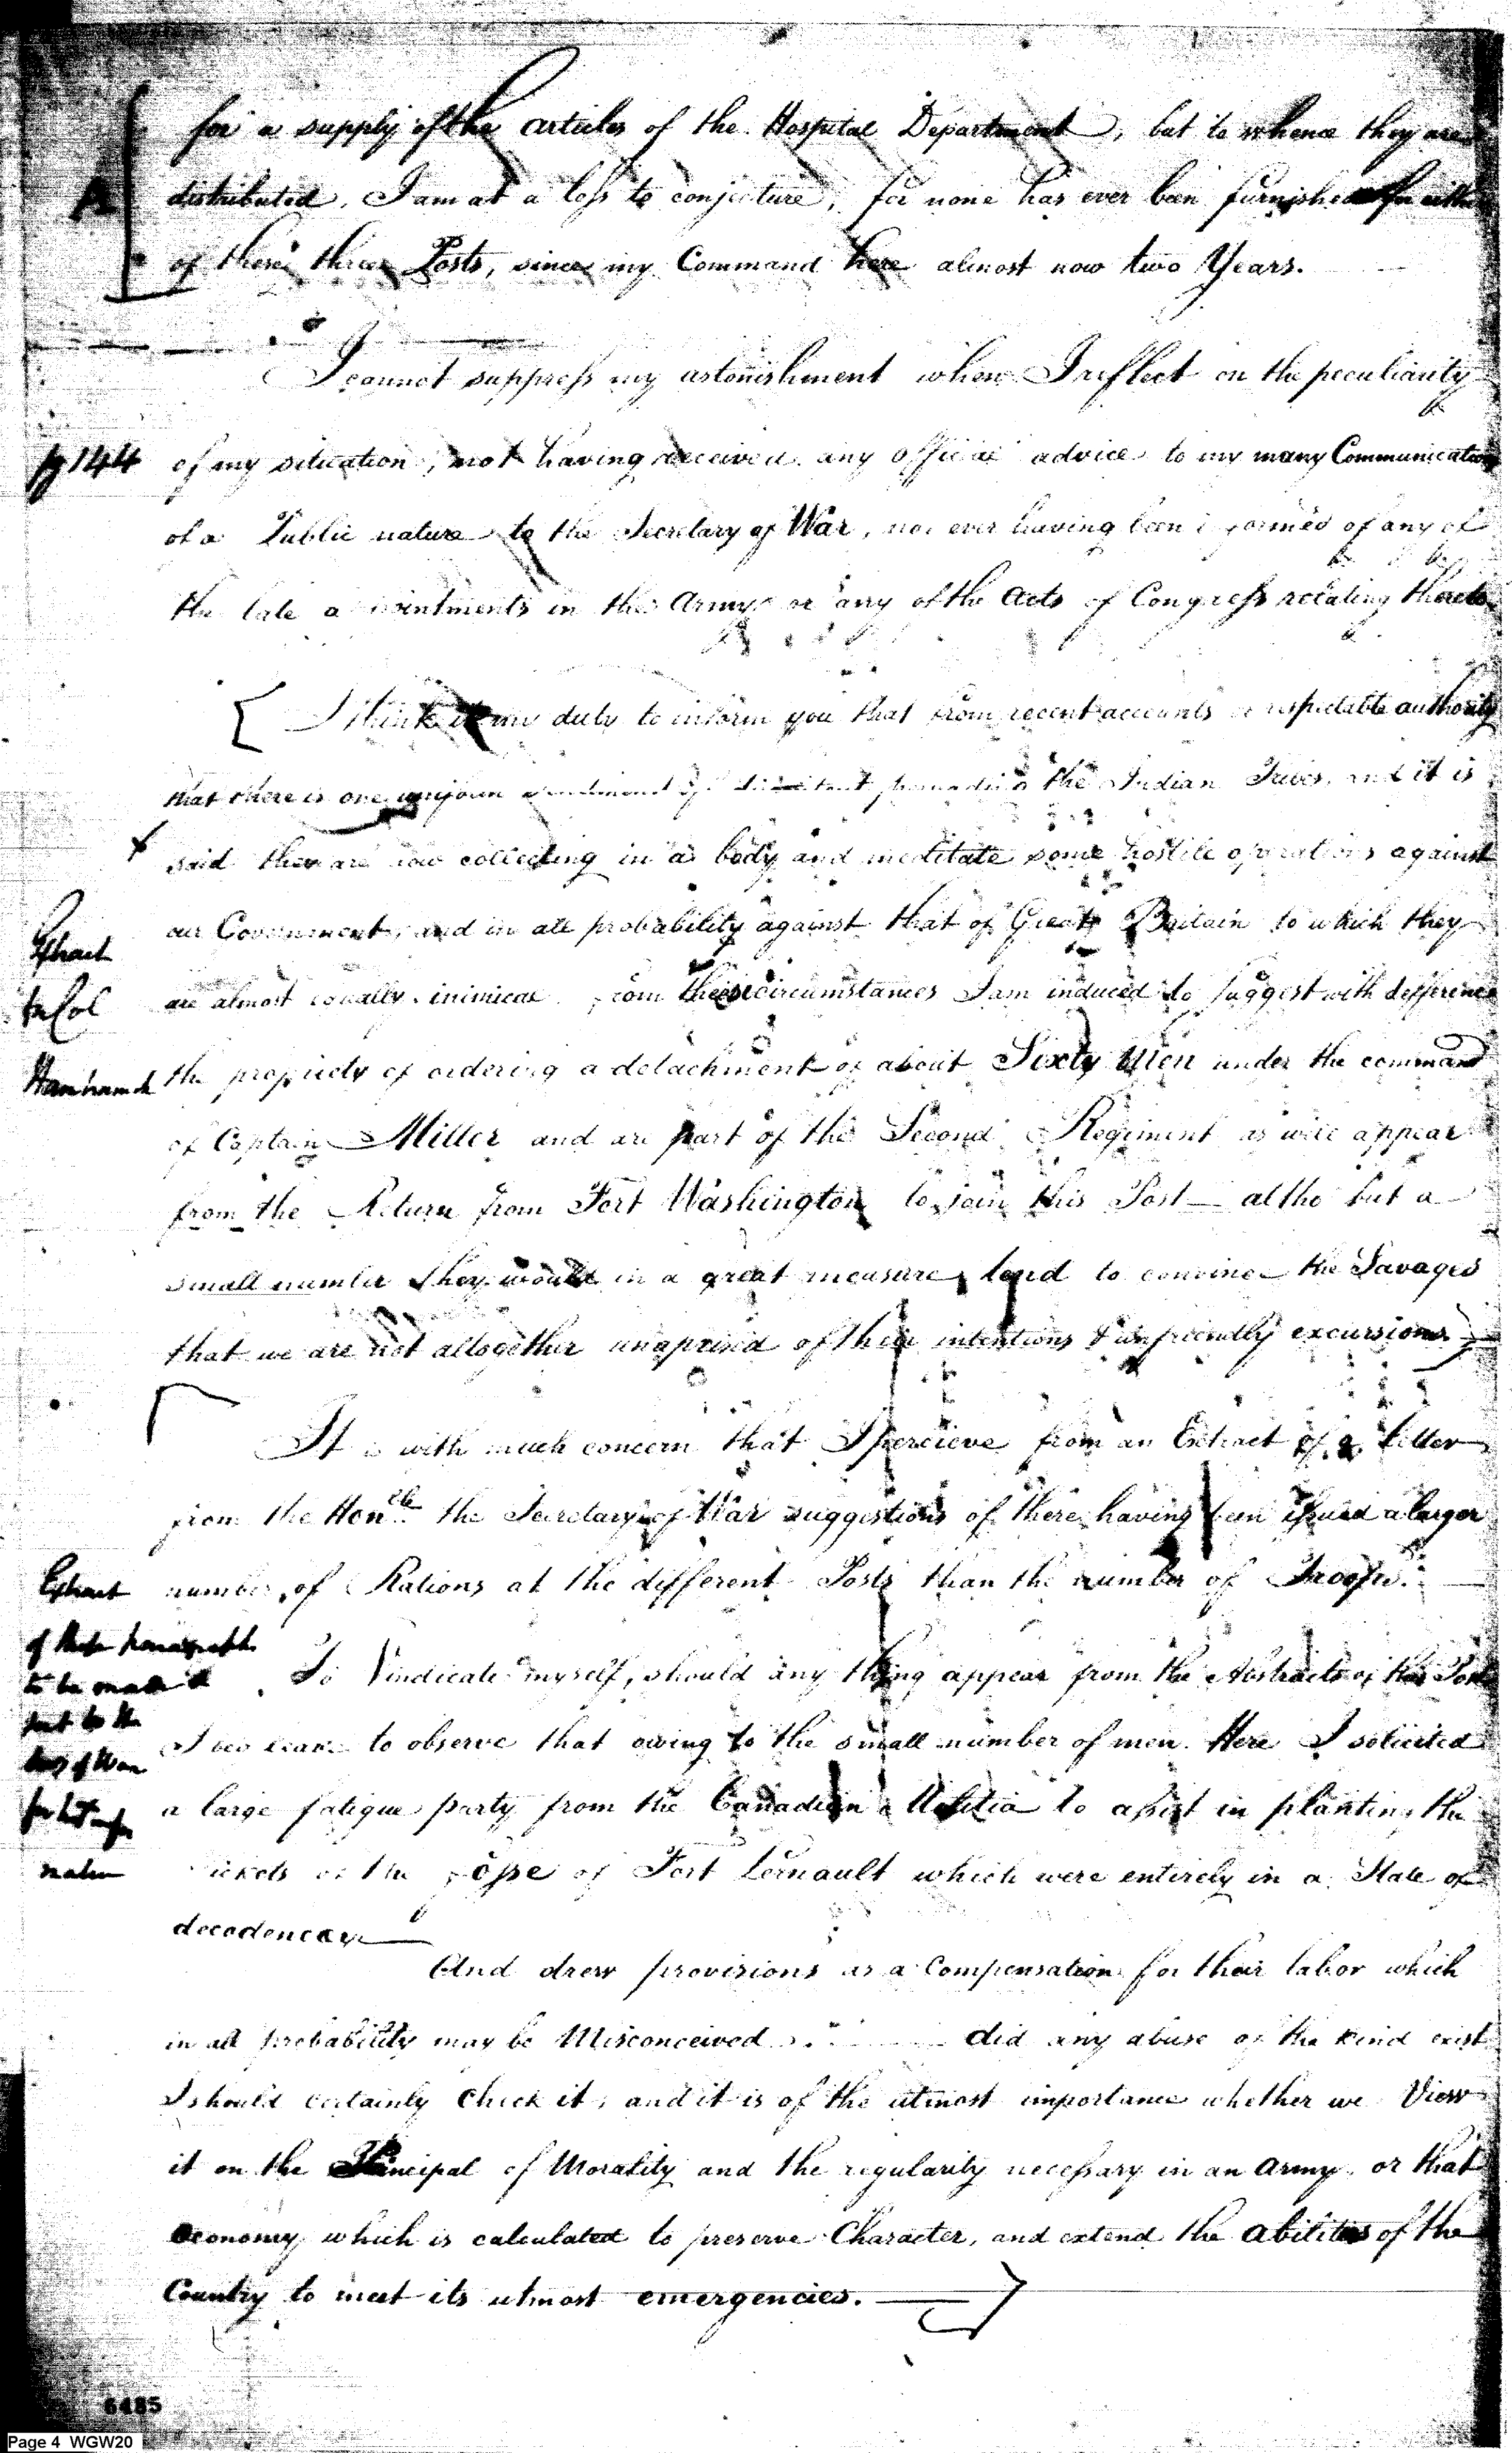 for a supply of the articles of the Hospital Department, but to whence they are
A
distributed, I am at a loss to conjecture, for none has ever been furnished for either
of these three Posts, since my Command here almost now two Years.
I cannot suppress my astonishment when I reflect on the peculiarity
pg 144
of my situation, not having received any official advice to my many Communications
of a Public nature to the Secretary of War, nor ever having been informed of any of
the late appointments in the Army or any of the Acts of Congress relating thereto
I think it my duty to inform you that from recent accounts of respectable authority
that there is one uniform pervading the Indian Tribes, and it is
said they are now collecting in a body and meditate some hostile operations against
our Government, and in all probability against that of Great Britain to which they
Extract
are almost equally inimical. From these circumstances I am induced to suggest with defference
to Col
the propriety of ordering a detachment of about Sixty Men under the command
Hamtramck
of Captain Miller and are part of the Second Regiment as will appear
from the Return from Fort Washington to join this Post — altho but a
small number they would in a great measure, tend to convince the Savages
that we are not altogether unaprised of their intentions & unfriendly excursions
It is with much concern that I percieve from an Extract of a letter
from the Honble the Secretary of War suggestions of there having been issued a larger
number of Rations at the different Posts than the number of Troops. —
Extract
of these paragraphs
To Vindicate myself, should any thing appear from the Abstracts of this Post
to be made &
sent to the
I beg leave to observe that owing to the small number of men Here I solicited
Secy of War
a large fatigue party from the Canadian Militia to assist in planting the
for his infor
Pickets of the fosse of Fort Lernault which were entirely in a State of
mation
decadency —
And drew provisions as a Compensation for their labor which
in all probability may be Misconceived did any abuse of the kind exist
I should certainly Check it, and it is of the utmost importance whether we View
it on the Principal of Morality and the regularity necessary in an Army, or that
Oeconomy which is calculated to preserve Character, and extend the abilities of the
Country to meet its utmost emergencies. —
6485
Page 4 WGW20